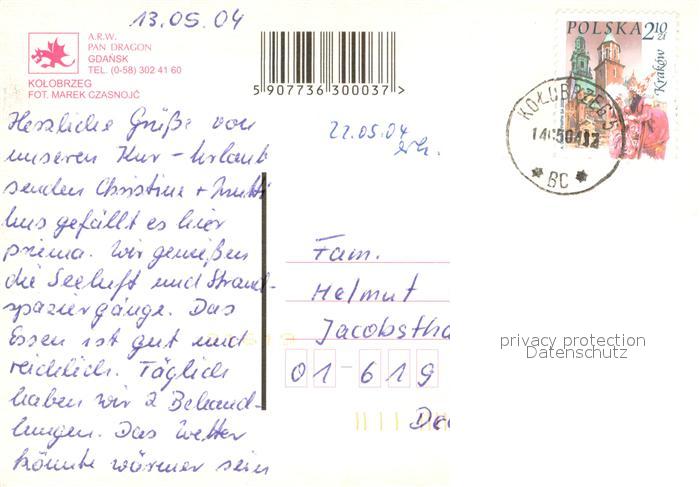 13.05.04
A.R.W.
PAN DRAGON
GDAŃSK
TEL. (0-58) 302 41 60
KOŁOBRZEG
FOT. MAREK CZASNOJĆ
5 907736 300037 >
POLSKA 2,10 zł
Kraków
KOŁOBRZEG 3
BC
22.05.04
erh.
Herzliche Grüße von
unseren Kur-Urlaub
senden Christine + Mutti
Uns gefällt es hier
prima. Wir genießen
die Seeluft und Strand-
spaziergänge. Das
Essen ist gut und
reichlich. Täglich
haben wir 2 Behand-
lungen. Das Wetter
könnte wärmer sein
Fam.
Helmut
Jacobstha
01-619
privacy protection
Datenschutz